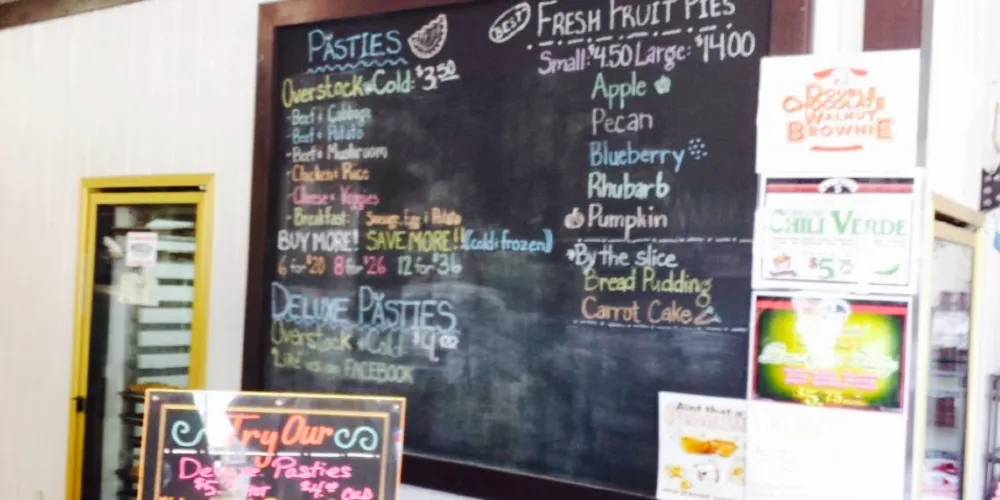 PASTIES
Overstock & Cold: $3.50
- Beef & Cabbage
- Beef & Potato
- Beef & Mushroom
- Chicken & Rice
- Cheese & Veggies
- Breakfast: Sausage, Egg & Potato
BUY MORE! SAVE MORE!! (cold & frozen)
6 for $20 8 for $26 12 for $36
DELUXE PASTIES
Overstock & Cold $4.00
Like us on FACEBOOK
BEST FRESH FRUIT PIES
Small: $4.50 Large: $14.00
Apple
Pecan
Blueberry
Rhubarb
Pumpkin
By the slice
Bread Pudding
Carrot Cake
DOUBLE
CHOCOLATE
WALNUT
BROWNIE
CHILI VERDE
$5.75
$5.75
Aint that a
Try Our
Deluxe Pasties